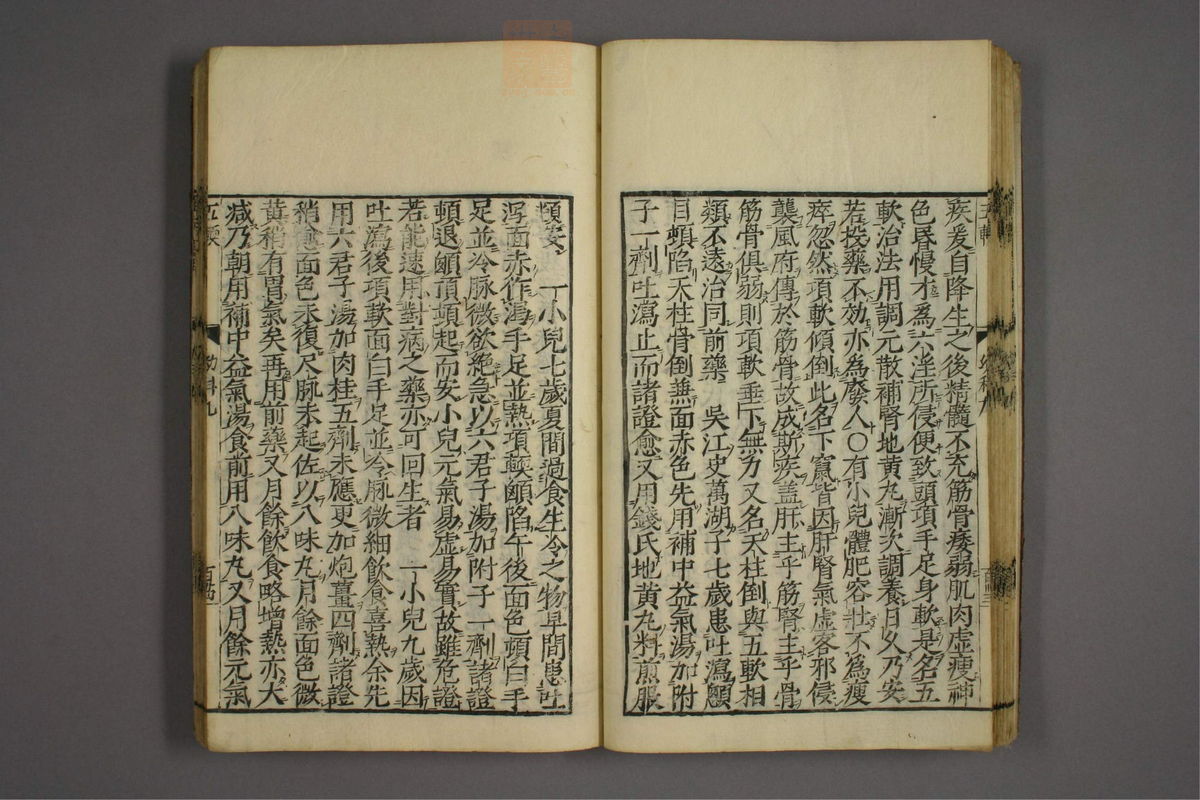 疾爰自降生之後精髓不充筋骨痿弱肌肉虛瘦神
色昏慢才為六淫所侵便致頭項手足身軟是名五
軟治法用調元散補腎地黄丸漸次調養日乆乃安
若投藥不効亦為廢人〇有小兒體肥容壯不為瘦
瘁忽然項軟傾倒此名下竄皆因肝腎氣虛客邪侵
襲風府傳於筋骨故成斯疾盖肝主乎筋腎主乎骨
筋骨俱弱則項軟垂下無力又名天柱倒與五軟相
類不遠治同前藥 吳江史萬湖子七歲患吐瀉顖
目頓陷天柱骨倒兼面赤色先用補中益氣湯加附
子一劑吐瀉止而諸證愈又用錢氏地黄丸料煎服
頓安 一小兒七歲夏間過食生冷之物早間患吐
瀉面赤作渴手足並熱項軟顱陷午後面色頓白手
足並冷脉微欲絶急以六君子湯加附子一劑諸證
頓退顱頂頓起而安小兒元氣易虛易實故雖危證
若能速用對病之藥亦可回生者 一小兒九歲因
吐瀉後項軟面白手足並冷脉微細飲食喜熱余先
用六君子湯加肉桂五劑未應更加炮薑四劑諸證
稍愈面色未復尺脉未起佐以八味丸月餘面色微
黄稍有胃氣矣再用前藥又月餘飲食略增熱亦大
减乃朝用補中益氣湯食前用八味丸又月餘元氣
幼科九